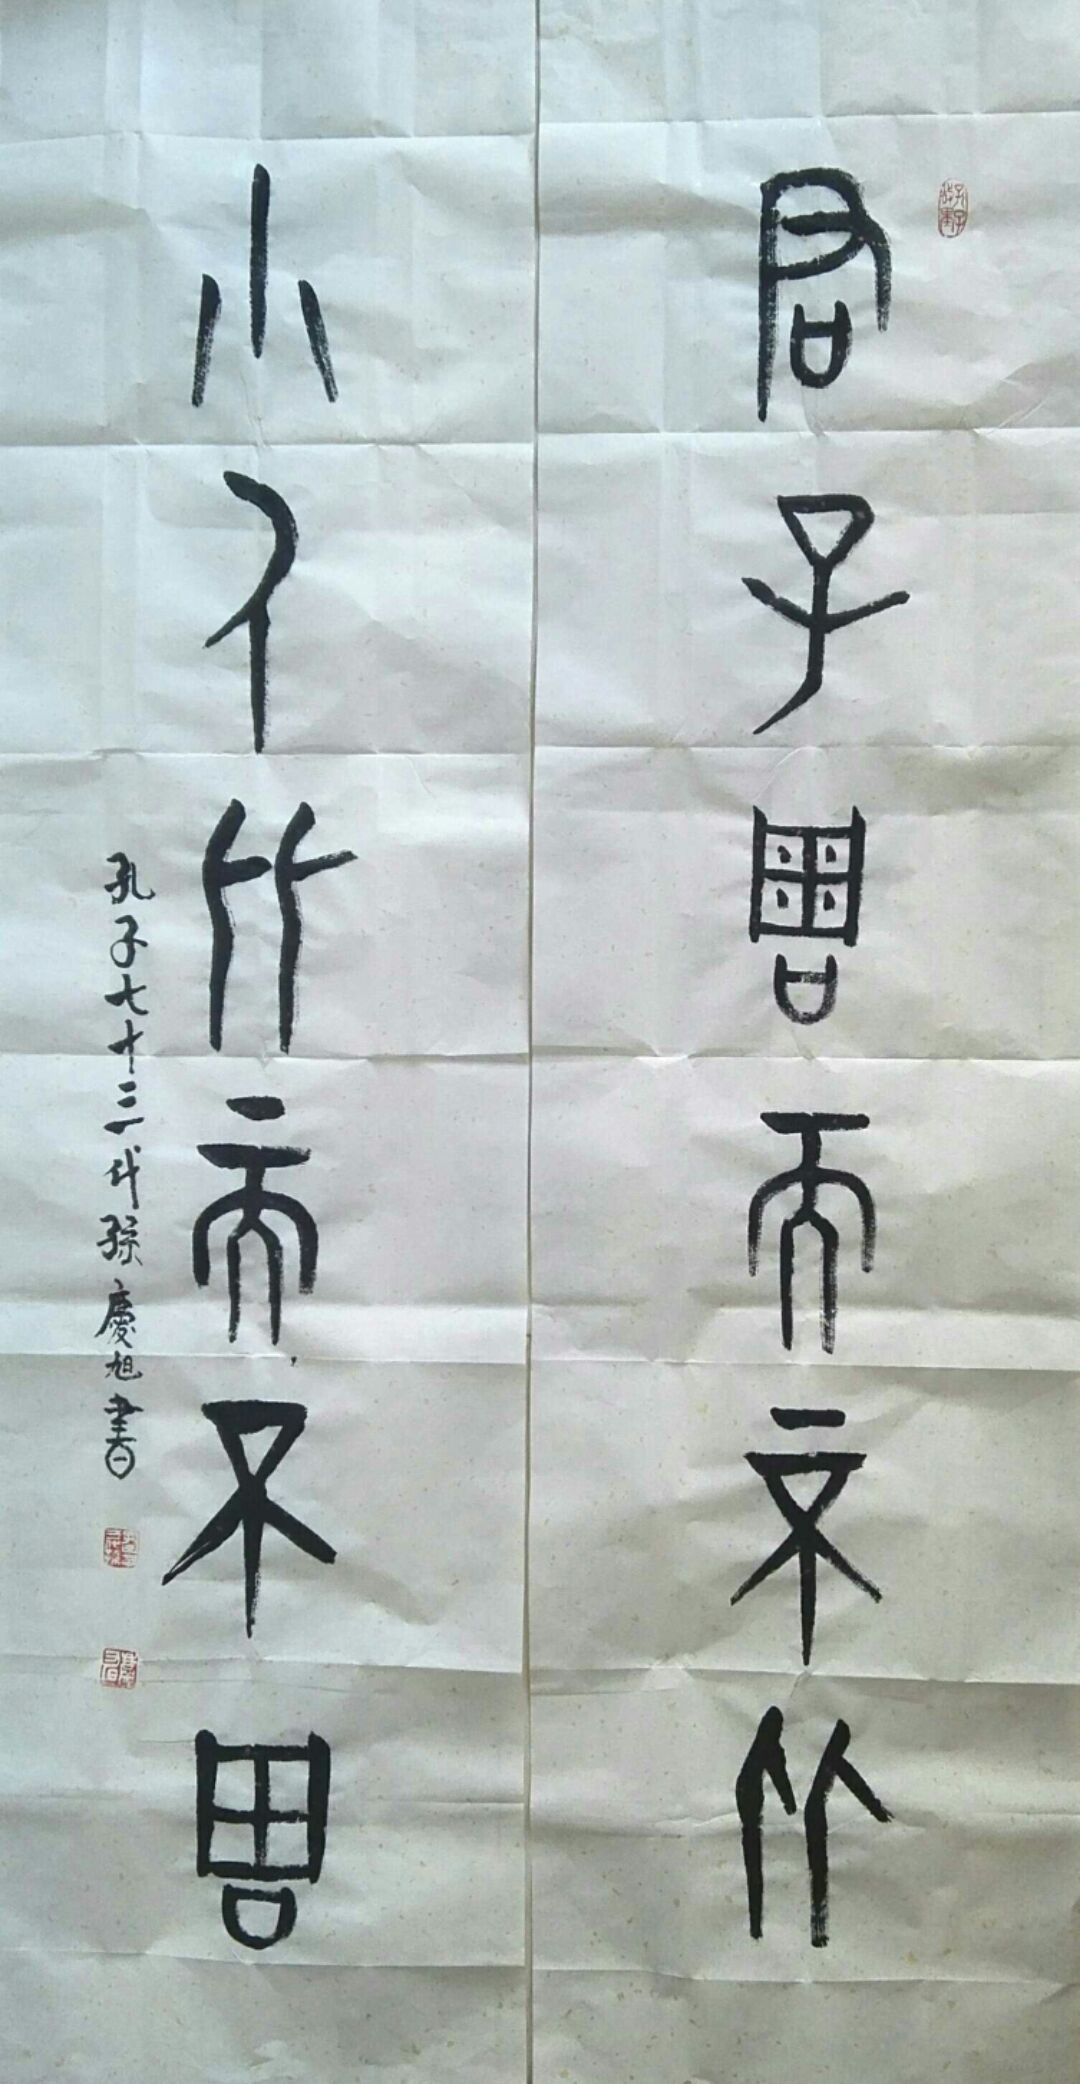 君子周而不比
小人比而不周
孔子七十三代孫慶旭書